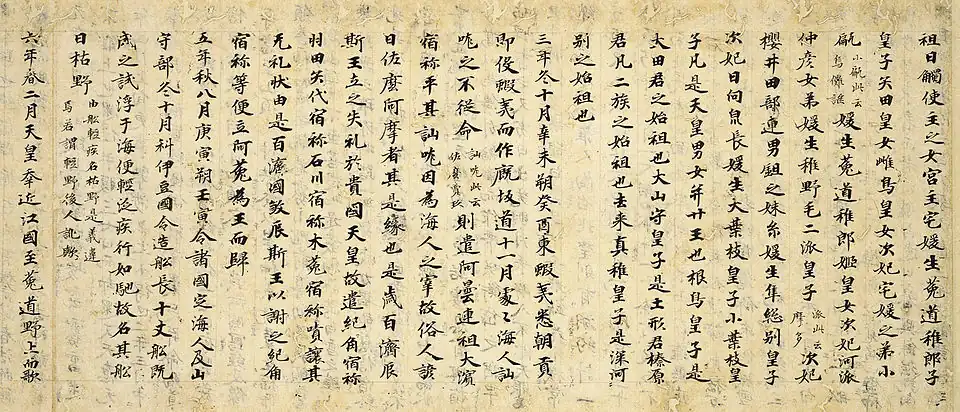 祖日觸使主之女宮主宅媛生菟道稚郎子
皇子矢田皇女雌鳥皇女次妃宅媛之弟小
甂小甂此云烏儺謎媛生菟道稚郎姬皇女次妃河派
仲彥女弟媛生稚野毛二派皇子派此云摩多次妃
櫻井田部連男鉏之妹糸媛生隼総別皇子
次妃日向泉長媛生大葉枝皇子小葉枝皇
子凡是天皇男女并廿王也根鳥皇子是
大田君之始祖也大山守皇子是土形君榛原
君凡二族之始祖也去来真稚皇子是深河
別之始祖也
三年冬十月辛未朔癸酉東蝦夷悉朝貢
即役蝦夷而作厩坂道十一月處々海人訕
哤之不從命訕哤此云佐麼賣玖則遣阿曇連祖大濱
宿祢平其訕哤因為海人之宰故俗人諺
曰佐麼阿摩者其是緣也是歲百濟辰
斯王立之失礼於貴國天皇故遣紀角宿祢
羽田矢代宿祢石川宿祢木菟宿祢嘖讓其
无礼狀由是百濟國敘辰斯王以謝之紀角
宿祢等便立阿菟為王而歸
五年秋八月庚寅朔壬寅令諸國定海人及山
守部冬十月科伊豆國令造舩長十丈舩既
成之試浮于海便輕泛疾行如馳故名其舩
曰枯野由舩輕疾名枯野是義違焉若謂輕野後人訛歟
六年春二月天皇幸近江國至菟道野上而歌